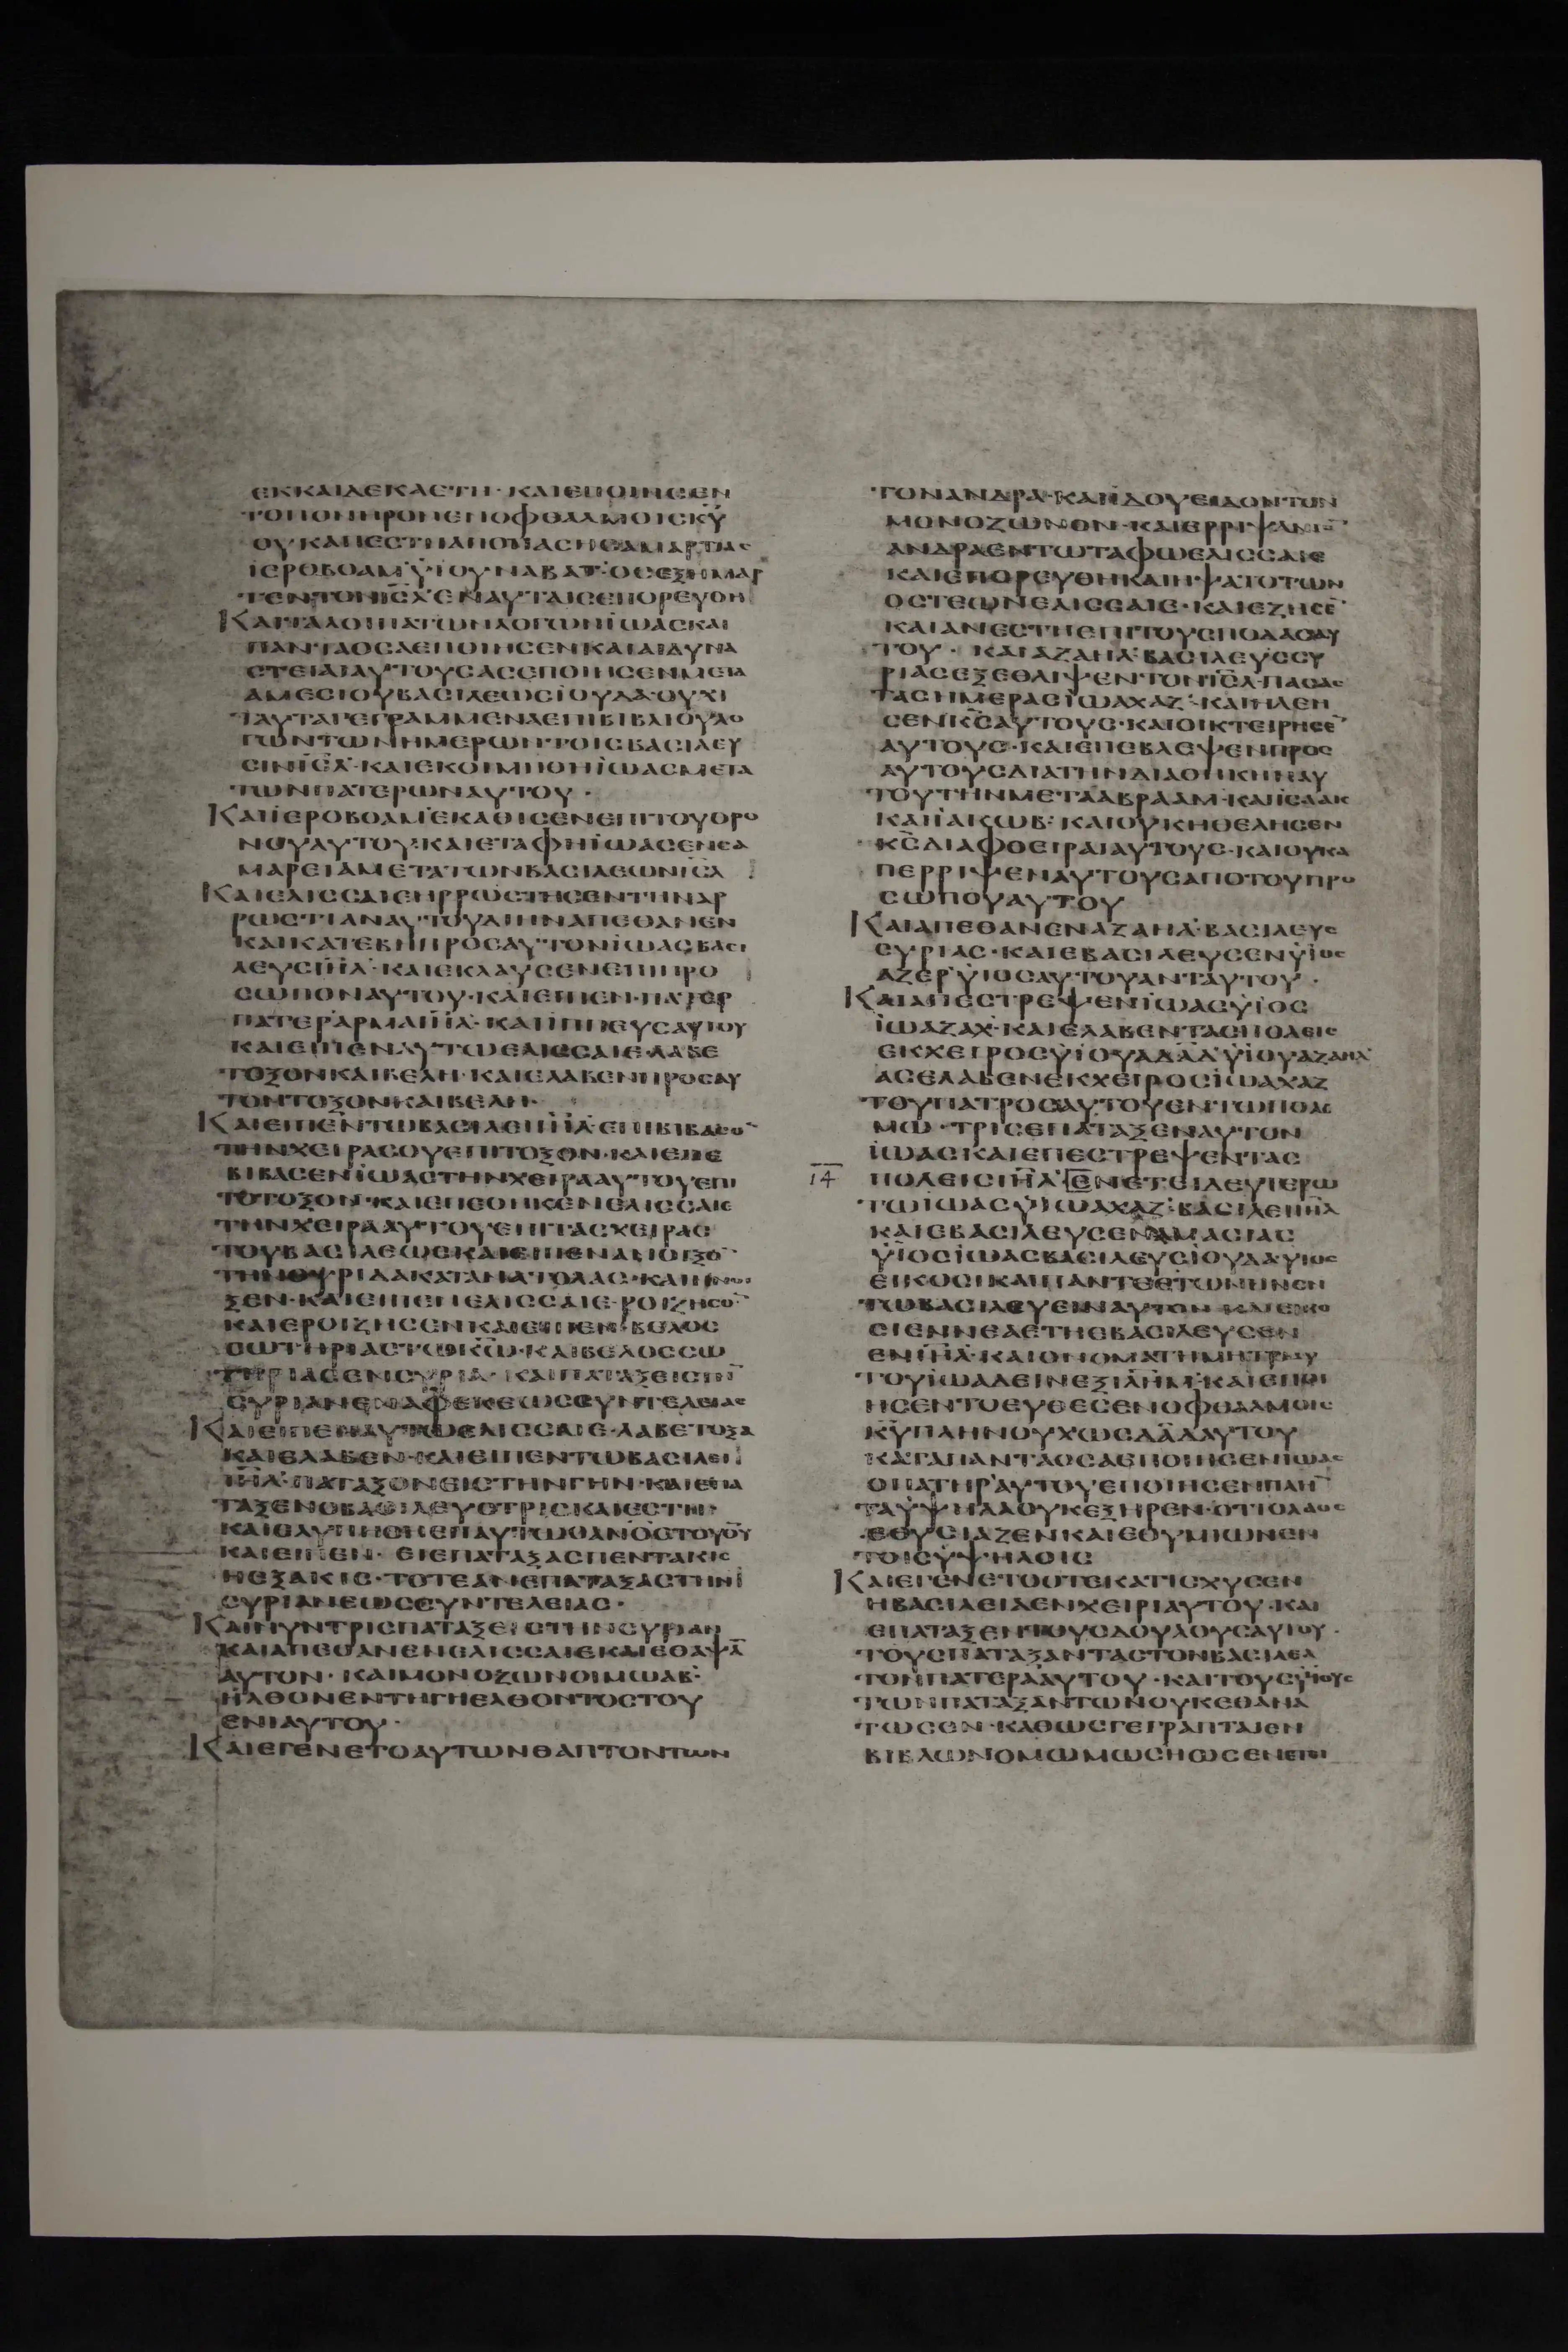 ΕΚΚΑΙΔΕΚΑΕΤΗ · ΚΑΙΕΠΟΙΗΣΕΝ
ΤΟΠΟΝΗΡΟΝΕΝΟΦΘΑΛΜΟΙΣΚΥ
ΟΥΚΑΠΕΣΤΗΑΠΟΠΑΣΗΣΑΜΑΡΤΙΑΣ
ΪΕΡΟΒΟΑΜ ΫΙΟΥΝΑΒΑΤ·ΟΣΕΞΗΜΑΡ
ΤΕΝΤΟΝΙΣΛ ΕΝΑΥΤΑΙΣΕΠΟΡΕΥΘΗ
ΚΑΙΤΑΛΟΙΠΑΤΩΝΛΟΓΩΝΪΩΑΣΚΑΙ
ΠΑΝΤΑΟΣΑΕΠΟΙΗΣΕΝΚΑΙΑΙΔΥΝΑ
ΣΤΕΙΑΙΑΥΤΟΥΣΑΣΕΠΟΙΗΣΕΝΜΕΤΑ
ΑΜΕΣΙΟΥΒΑΣΙΛΕΩΣΪΟΥΔΑ·ΟΥΧΙ
ΤΑΥΤΑΓΕΓΡΑΜΜΕΝΑΕΠΙΒΙΒΛΙΟΥΛΟ
ΓΩΝΤΩΝΗΜΕΡΩΝΤΟΙΣΒΑΣΙΛΕΥ
ΣΙΝΙΣΛ·ΚΑΙΕΚΟΙΜΗΘΗΪΩΑΣΜΕΤΑ
ΤΩΝΠΑΤΕΡΩΝΑΥΤΟΥ ·
ΚΑΙΪΕΡΟΒΟΑΜ ΕΚΑΘΙΣΕΝΕΠΙΤΟΥΘΡΟ
ΝΟΥΑΥΤΟΥ·ΚΑΙΕΤΑΦΗΪΩΑΣΕΝΣΑ
ΜΑΡΕΙΑΜΕΤΑΤΩΝΒΑΣΙΛΕΩΝΙΣΛ
ΚΑΙΕΛΙΣΣΑΙΕΗΡΡΩΣΤΗΣΕΝΤΗΝΑΡ
ΡΩΣΤΙΑΝΑΥΤΟΥΔΙΗΝΑΠΕΘΑΝΕΝ
ΚΑΙΚΑΤΕΒΗΠΡΟΣΑΥΤΟΝΪΩΑΣΒΑΣΙ
ΛΕΥΣΙΗΛ·ΚΑΙΕΚΛΑΥΣΕΝΕΠΙΠΡΟ
ΣΩΠΟΝΑΥΤΟΥ·ΚΑΙΕΙΠΕΝ·ΠΑΤΕΡ
ΠΑΤΕΡ ΑΡΜΑΙΗΛ·ΚΑΙΙΠΠΕΥΣΑΥΤΟΥ
ΚΑΙΕΙΠΕΝΑΥΤΩΕΛΙΣΣΑΙΕ·ΛΑΒΕ
ΤΟΞΟΝΚΑΙΒΕΛΗ·ΚΑΙΕΛΑΒΕΝΠΡΟΣΑΥ
ΤΟΝΤΟΞΟΝΚΑΙΒΕΛΗ·
ΚΑΙΕΙΠΕΝΤΩΒΑΣΙΛΕΙΙΗΛ·ΕΠΙΒΙΒΑΣΟΝ
ΤΗΝΧΕΙΡΑΣΟΥΕΠΙΤΟΞΟΝ·ΚΑΙΕΠΕ
ΒΙΒΑΣΕΝΪΩΑΣΤΗΝΧΕΙΡΑΑΥΤΟΥΕΠΙ
ΤΟΤΟΞΟΝ·ΚΑΙΕΠΕΘΗΚΕΝΕΛΙΣΣΑΙΕ
ΤΗΝΧΕΙΡΑΑΥΤΟΥΕΠΙΤΑΣΧΕΙΡΑΣ
ΤΟΥΒΑΣΙΛΕΩΣΚΑΙΕΙΠΕΝΑΝΟΙΞΟΝ
ΤΗΝΘΥΡΙΔΑΚΑΤΑΝΑΤΟΛΑΣ·ΚΑΙΗΝΟΙ
ΞΕΝ·ΚΑΙΕΙΠΕΝΕΛΙΣΣΑΙΕ·ΡΟΙΖΗΣΟΝ
ΚΑΙΕΡΟΙΖΗΣΕΝΚΑΙΕΙΠΕΝ·ΒΕΛΟΣ
ΣΩΤΗΡΙΑΣΤΩΚΩ·ΚΑΙΒΕΛΟΣΣΩ
ΤΗΡΙΑΣΕΝΣΥΡΙΑ·ΚΑΙΠΑΤΑΞΕΙΣΤΗΝ
ΣΥΡΙΑΝΕΝΑΦΕΚΕΩΣΣΥΝΤΕΛΕΙΑΣ
ΚΑΙΕΙΠΕΝΑΥΤΩΕΛΙΣΣΑΙΕ·ΛΑΒΕΤΟΞΑ
ΚΑΙΕΛΑΒΕΝ·ΚΑΙΕΙΠΕΝΤΩΒΑΣΙΛΕΙ
ΙΗΛ·ΠΑΤΑΞΟΝΕΙΣΤΗΝΓΗΝ·ΚΑΙΕΠΑ
ΤΑΞΕΝΟΒΑΣΙΛΕΥΣΤΡΙΣΚΑΙΕΣΤΗ·
ΚΑΙΕΛΥΠΗΘΗΕΠΑΥΤΩΘΑΝΟΣΤΟΥΘΥ
ΚΑΙΕΙΠΕΝ· ΕΙΕΠΑΤΑΞΑΣΠΕΝΤΑΚΙΣ
ΗΕΞΑΚΙΣ·ΤΟΤΕΑΝΕΠΑΤΑΞΑΣΤΗΝ
ΣΥΡΙΑΝΕΩΣΣΥΝΤΕΛΕΙΑΣ·
ΚΑΙΝΥΝΤΡΙΣΠΑΤΑΞΕΙΣΤΗΝΣΥΡΙΑΝ
ΚΑΙΑΠΕΘΑΝΕΝΕΛΙΣΣΑΙΕΚΑΙΕΘΑΨΑ
ΑΥΤΟΝ · ΚΑΙΜΟΝΟΖΩΝΟΙΜΩΑΒ·
ΗΛΘΟΝΕΝΤΗΓΗΕΛΘΟΝΤΟΣΤΟΥ
ΕΝΙΑΥΤΟΥ·
ΚΑΙΕΓΕΝΕΤΟΑΥΤΩΝΘΑΠΤΟΝΤΩΝ
ΤΟΝΑΝΔΡΑ·ΚΑΙΪΔΟΥΕΙΔΟΝΤΟΝ
ΜΟΝΟΖΩΝΟΝ·ΚΑΙΕΡΡΙΨΑΝΤΟΝ
ΑΝΔΡΑΕΝΤΩΤΑΦΩΕΛΙΣΣΑΙΕ
ΚΑΙΕΠΟΡΕΥΘΗΚΑΙΗΨΑΤΟΤΩΝ
ΟΣΤΕΩΝΕΛΙΣΣΑΙΕ·ΚΑΙΕΖΗΣΕ
ΚΑΙΑΝΕΣΤΗΕΠΙΤΟΥΣΠΟΔΑΣΑΥ
ΤΟΥ · ΚΑΙΑΖΑΗΛ·ΒΑΣΙΛΕΥΣΣΥ
ΡΙΑΣΕΞΕΘΛΙΨΕΝΤΟΝΙΣΛ·ΠΑΣΑΣ
ΤΑΣΗΜΕΡΑΣΪΩΑΧΑΖ·ΚΑΙΗΛΕΗ
ΣΕΝΚΣΑΥΤΟΥΣ·ΚΑΙΟΙΚΤΕΙΡΗΣΕ
ΑΥΤΟΥΣ·ΚΑΙΕΠΕΒΛΕΨΕΝΠΡΟΣ
ΑΥΤΟΥΣΔΙΑΤΗΝΔΙΑΘΗΚΗΝΑΥ
ΤΟΥΤΗΝΜΕΤΑΑΒΡΑΑΜ·ΚΑΙΙΣΑΑΚ
ΚΑΙΪΑΚΩΒ·ΚΑΙΟΥΚΗΘΕΛΗΣΕΝ
ΚΣΔΙΑΦΘΕΙΡΑΙΑΥΤΟΥΣ·ΚΑΙΟΥΚΑ
ΠΕΡΡΙΨΕΝΑΥΤΟΥΣΑΠΟΤΟΥΠΡΟ
ΣΩΠΟΥΑΥΤΟΥ
ΚΑΙΑΠΕΘΑΝΕΝΑΖΑΗΛ·ΒΑΣΙΛΕΥΣ
ΣΥΡΙΑΣ·ΚΑΙΕΒΑΣΙΛΕΥΣΕΝΫΙΟΣ
ΑΔΕΡ ΫΙΟΣΑΥΤΟΥΑΝΤΑΥΤΟΥ ·
ΚΑΙΑΠΕΣΤΡΕΨΕΝΪΩΑΣΫΙΟΣ
ΪΩΑΖΑΧ·ΚΑΙΕΛΑΒΕΝΤΑΣΠΟΛΕΙΣ
ΕΚΧΕΙΡΟΣΫΙΟΥΑΔΑΔ ΫΙΟΥΑΖΑΗΛ
ΑΣΕΛΑΒΕΝΕΚΧΕΙΡΟΣΪΩΑΧΑΖ
ΤΟΥΠΑΤΡΟΣΑΥΤΟΥΕΝΤΩΠΟΛΕ
ΜΩ·ΤΡΙΣΕΠΑΤΑΞΕΝΑΥΤΟΝ
ΪΩΑΣΚΑΙΕΠΕΣΤΡΕΨΕΝΤΑΣ
14 ΠΟΛΕΙΣΙΗΛ ΕΝΕΤΕΙΔΕΥΤΕΡΩ
ΤΩΪΩΑΣΫΙΩΑΧΑΖ·ΒΑΣΙΛΕΙΙΗΛ
ΚΑΙΕΒΑΣΙΛΕΥΣΕΝΑΜΑΣΙΑΣ
ΫΙΟΣΪΩΑΣΒΑΣΙΛΕΥΣΪΟΥΔΑ·ΥΙΟΣ
ΕΙΚΟΣΙΚΑΙΠΑΝΤΕΕΤΩΝΗΝΕΝ
ΤΩΒΑΣΙΛΕΥΕΙΝΑΥΤΟΝ ΚΑΙΕΙΚΟ
ΣΙΕΝΝΕΑΕΤΗΕΒΑΣΙΛΕΥΣΕΝ
ΕΝΙΗΛ·ΚΑΙΟΝΟΜΑΤΗΜΗΤΡΙΑΥ
ΤΟΥΪΩΑΔΕΙΝΕΞΙΛΗΜ·ΚΑΙΕΠΟΙ
ΗΣΕΝΤΟΕΥΘΕΣΕΝΟΦΘΑΛΜΟΙΣ
ΚΥΠΛΗΝΟΥΧΩΣΔΑΔΑΥΤΟΥ
ΚΑΤΑΠΑΝΤΑΟΣΑΕΠΟΙΗΣΕΝΪΩΑΣ
ΟΠΑΤΗΡ ΑΥΤΟΥΕΠΟΙΗΣΕΝΠΛΗ
ΤΑΫΨΗΛΑΟΥΚΕΞΗΡΕΝ·ΟΤΙΟΛΑΟΣ
ΕΘΥΣΙΑΖΕΝΚΑΙΕΘΥΜΙΩΝΕΝ
ΤΟΙΣΫΨΗΛΟΙΣ
ΚΑΙΕΓΕΝΕΤΟΟΤΕΚΑΤΙΣΧΥΣΕΝ
ΗΒΑΣΙΛΕΙΑΕΝΧΕΙΡΙΑΥΤΟΥ·ΚΑΙ
ΕΠΑΤΑΞΕΝΤΟΥΣΔΟΥΛΟΥΣΑΥΤΟΥ·
ΤΟΥΣΠΑΤΑΞΑΝΤΑΣΤΟΝΒΑΣΙΛΕΑ
ΤΟΝΠΑΤΕΡΑΑΥΤΟΥ·ΚΑΙΤΟΥΣΫΙΟΥΣ
ΤΩΝΠΑΤΑΞΑΝΤΩΝΟΥΚΕΘΑΝΑ
ΤΩΣΕΝ·ΚΑΘΩΣΓΕΓΡΑΠΤΑΙΕΝ
ΒΙΒΛΩΝΟΜΩΜΩΣΗΩΣΕΝΕΤΙ